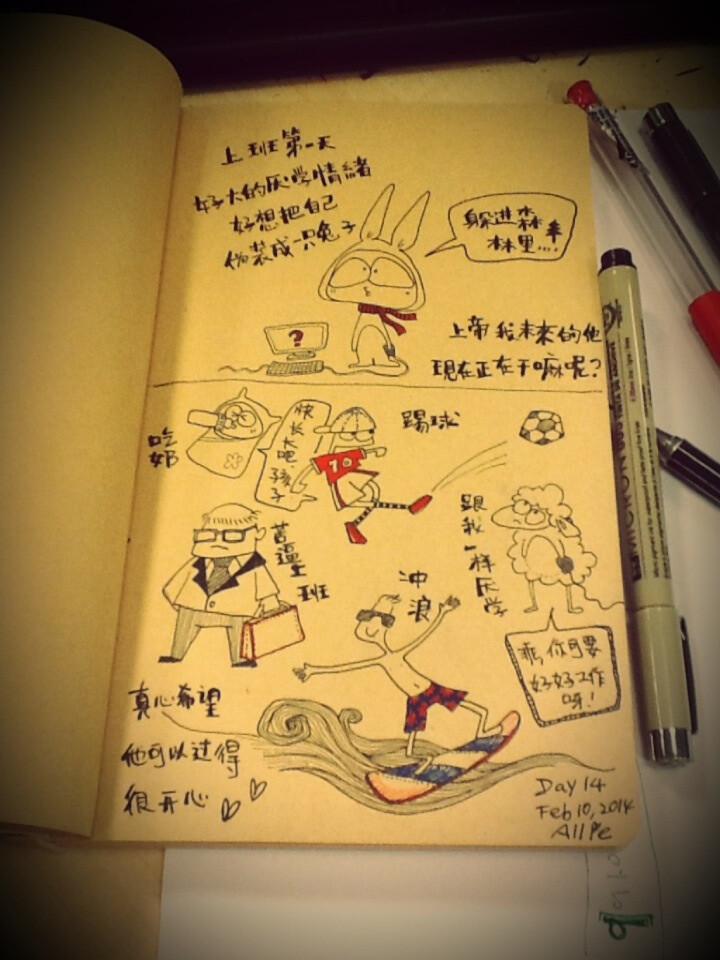 上班第一天
好大的厌学情緒
好想把自己
伪装成一只兔子
躲进森
林里...
?
上帝我未來的他
現在正在干嘛呢?
吃
奶
快
长
大
吧,
孩
子
踢球
10
苦逼上
班
冲
浪
跟
我
一
样
厌
学
乖,你可要
好好工作
呀!
真心希望
他可以过得
很开心
Day 14
Feb 10, 2014
AllPe
MICRON